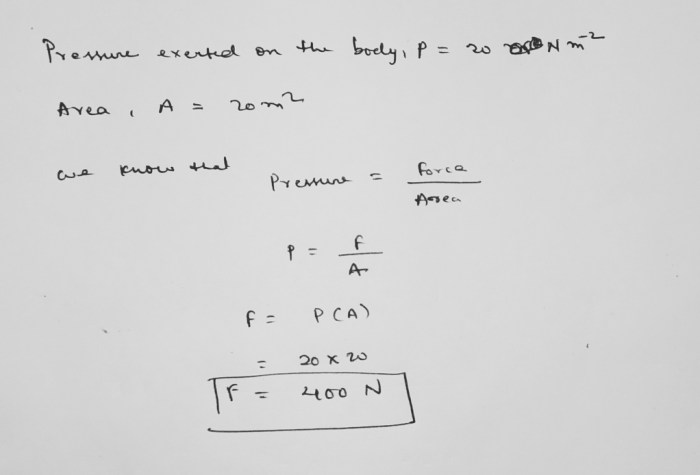 Pressure exerted on the body, P = 20 N m⁻²
Area, A = 20 m²
we know that
Pressure = Force / Area
P = F / A
F = P(A)
= 20 × 20
F = 400 N